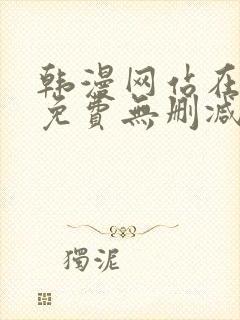 韩漫网站在
免費無删减
獨泥